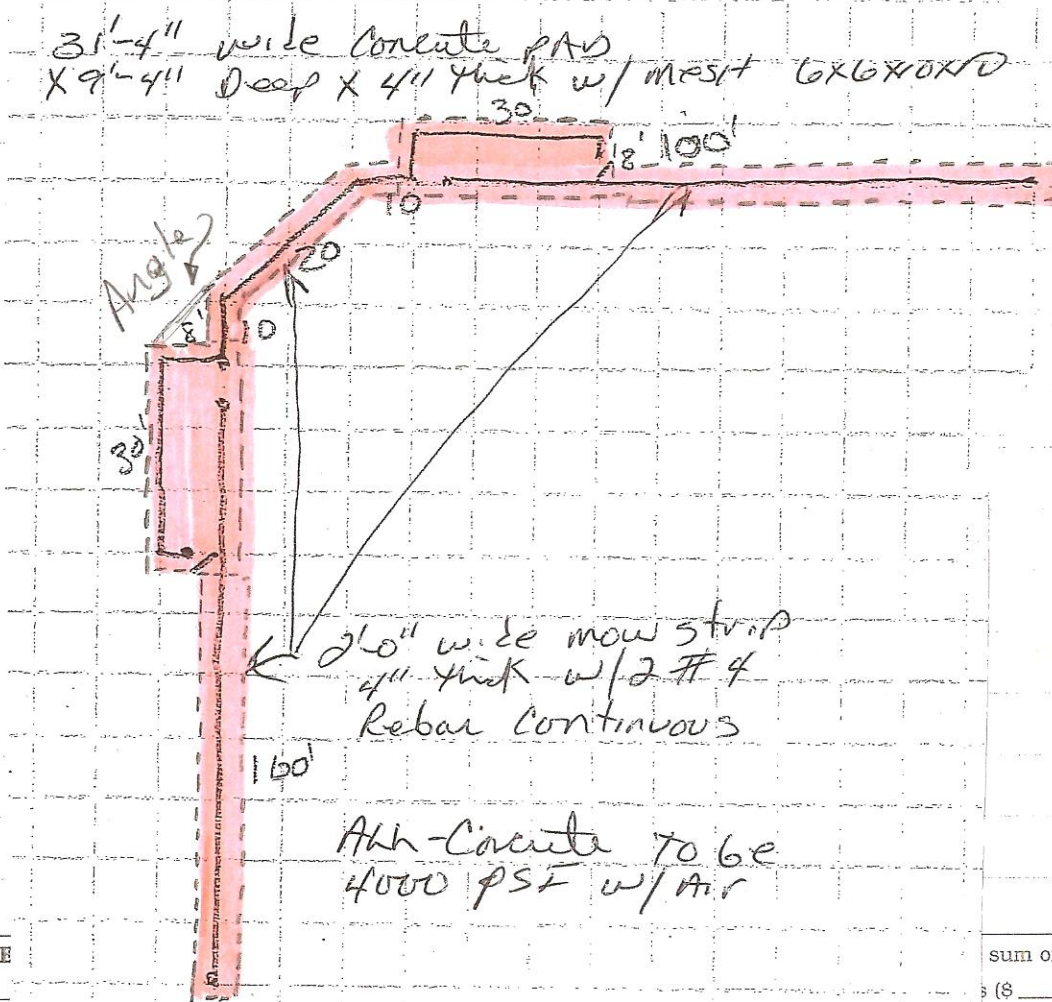 31'-4" wide Concrete PAD
X 9'-4" Deep X 4" thick w/ mesh 6x6x10x10
30
8' 100'
10
20
Angle
8' 10
30'
2'-0" wide mow strip
4" thick w/2 #4
Rebar Continuous
160'
All-Concrete To be
4000 PSI w/ Air
sum o
s ($